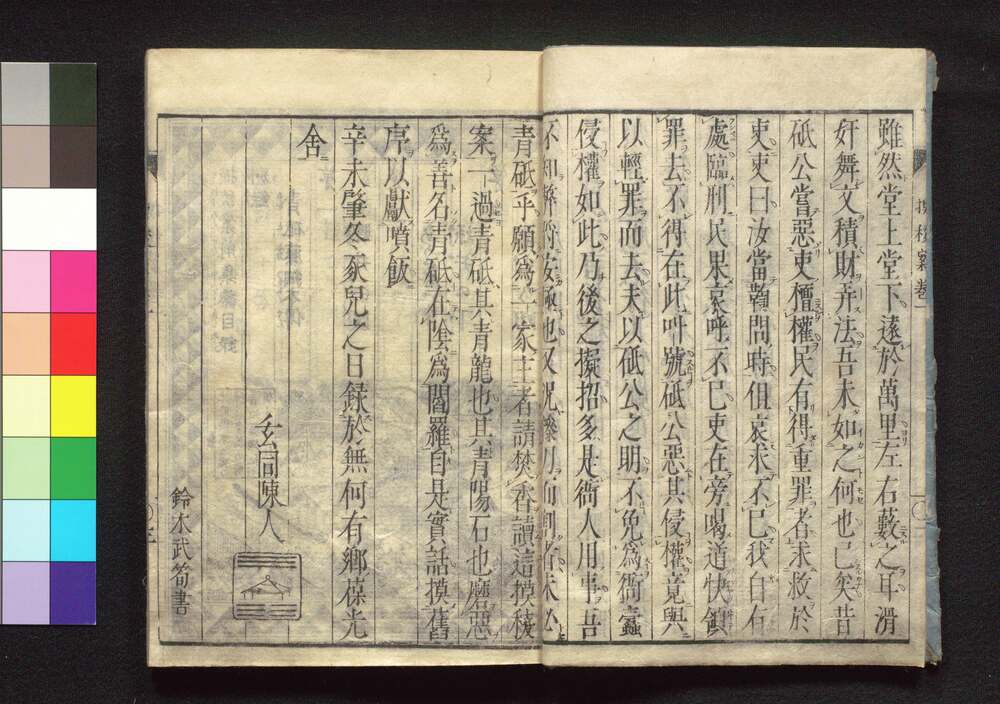 雖然堂上堂下遠於萬里左右藪之耳滑
奸舞文積財弄法吾未如之何也已矣昔
砥公嘗惡吏擅權民有得重罪者求救於
吏吏曰汝當鞫問時但哀求不已我自有
處臨刑民果哀呼不已吏在旁喝道快領
罪去不得在此叫號砥公惡其侵權竟與
以輕罪而去夫以砥公之明不免為衙蠹
侵權如此乃後之擬招多是衙人用事吾
青砥乎願為一家主者請焚香讀這摸稜
案一過青砥其青龍也其青陽石也磨惡
為善名青砥在陰為閻羅自是實話摸舊
序以獻噴飯
辛未肇冬豕兒之日録於無何有鄉葆光
舍
玄同陳人
鈴木武筍書
摸稜案巻一